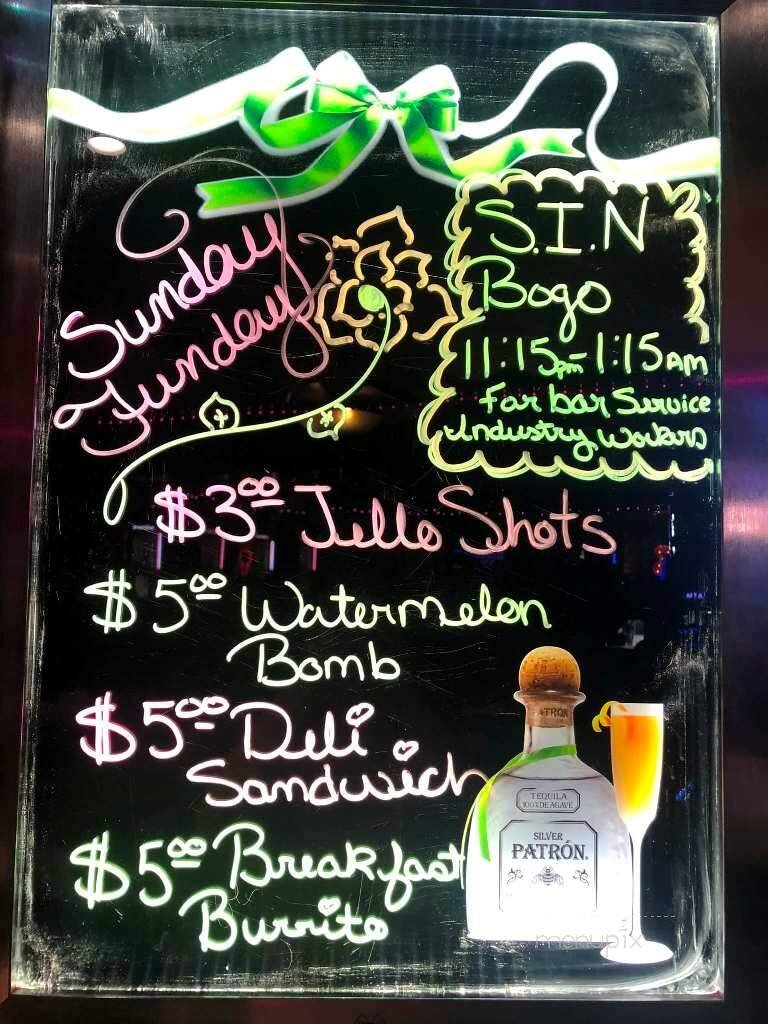 Sunday
Funday
S.I.N
Bogo
11:15pm-1:15AM
For bar Service
Industry workers
$3.00 Jello Shots
$5.00 Watermelon
Bomb
$5.00 Deli
Sandwich
$5.00 Breakfast
Burrito
PATRÓN
TEQUILA
100% DE AGAVE
SILVER
PATRÓN.
menupix